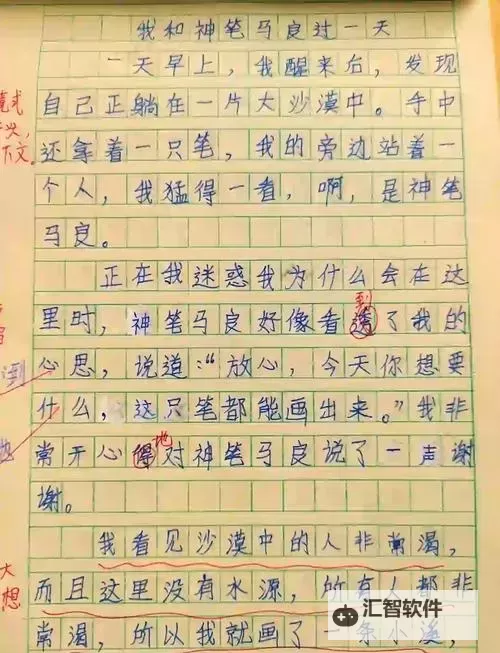 我和神笔马良过一天
一天早上，我醒来后，发现
自己正躺在一片大沙漠中。手中
还拿着一只笔，我的旁边站着一
个人，我猛得一看，啊，是神笔
马良。
正在我迷惑我为什么会在这
到
里时，神笔马良好像看透了我的
心思，说道：“放心，今天你想要
什么，这只笔都能画出来。”我非
地
常开心得对神笔马良说了一声谢
谢。
我看见沙漠中的人非常渴，
而且这里没有水源，所有人都非
常渴，所以我就画了一条小溪，
下文。
到
大
想
汇智软件